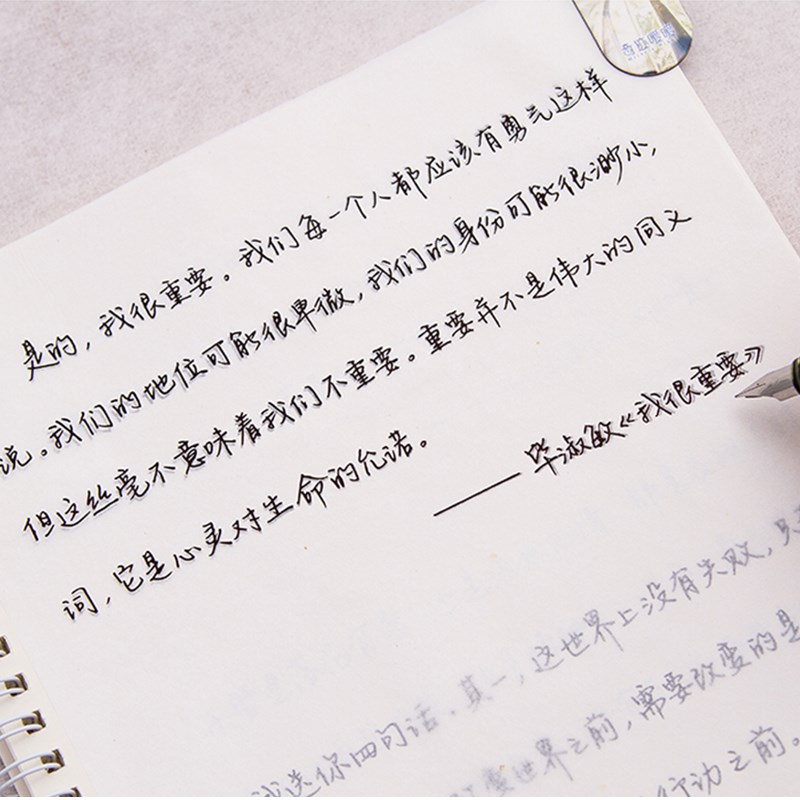 是的，我很重要。我们每一个人都应该有勇气这样
说。我们的地位可能很卑微，我们的身份可能很渺小，
但这丝毫不意味着我们不重要。重要并不是伟大的同义
词，它是心灵对生命的允诺。
——毕淑敏《我很重要》
我送你四句话。其一，这世界上没有失败，只
变世界之前，需要改变的是
行动之前。